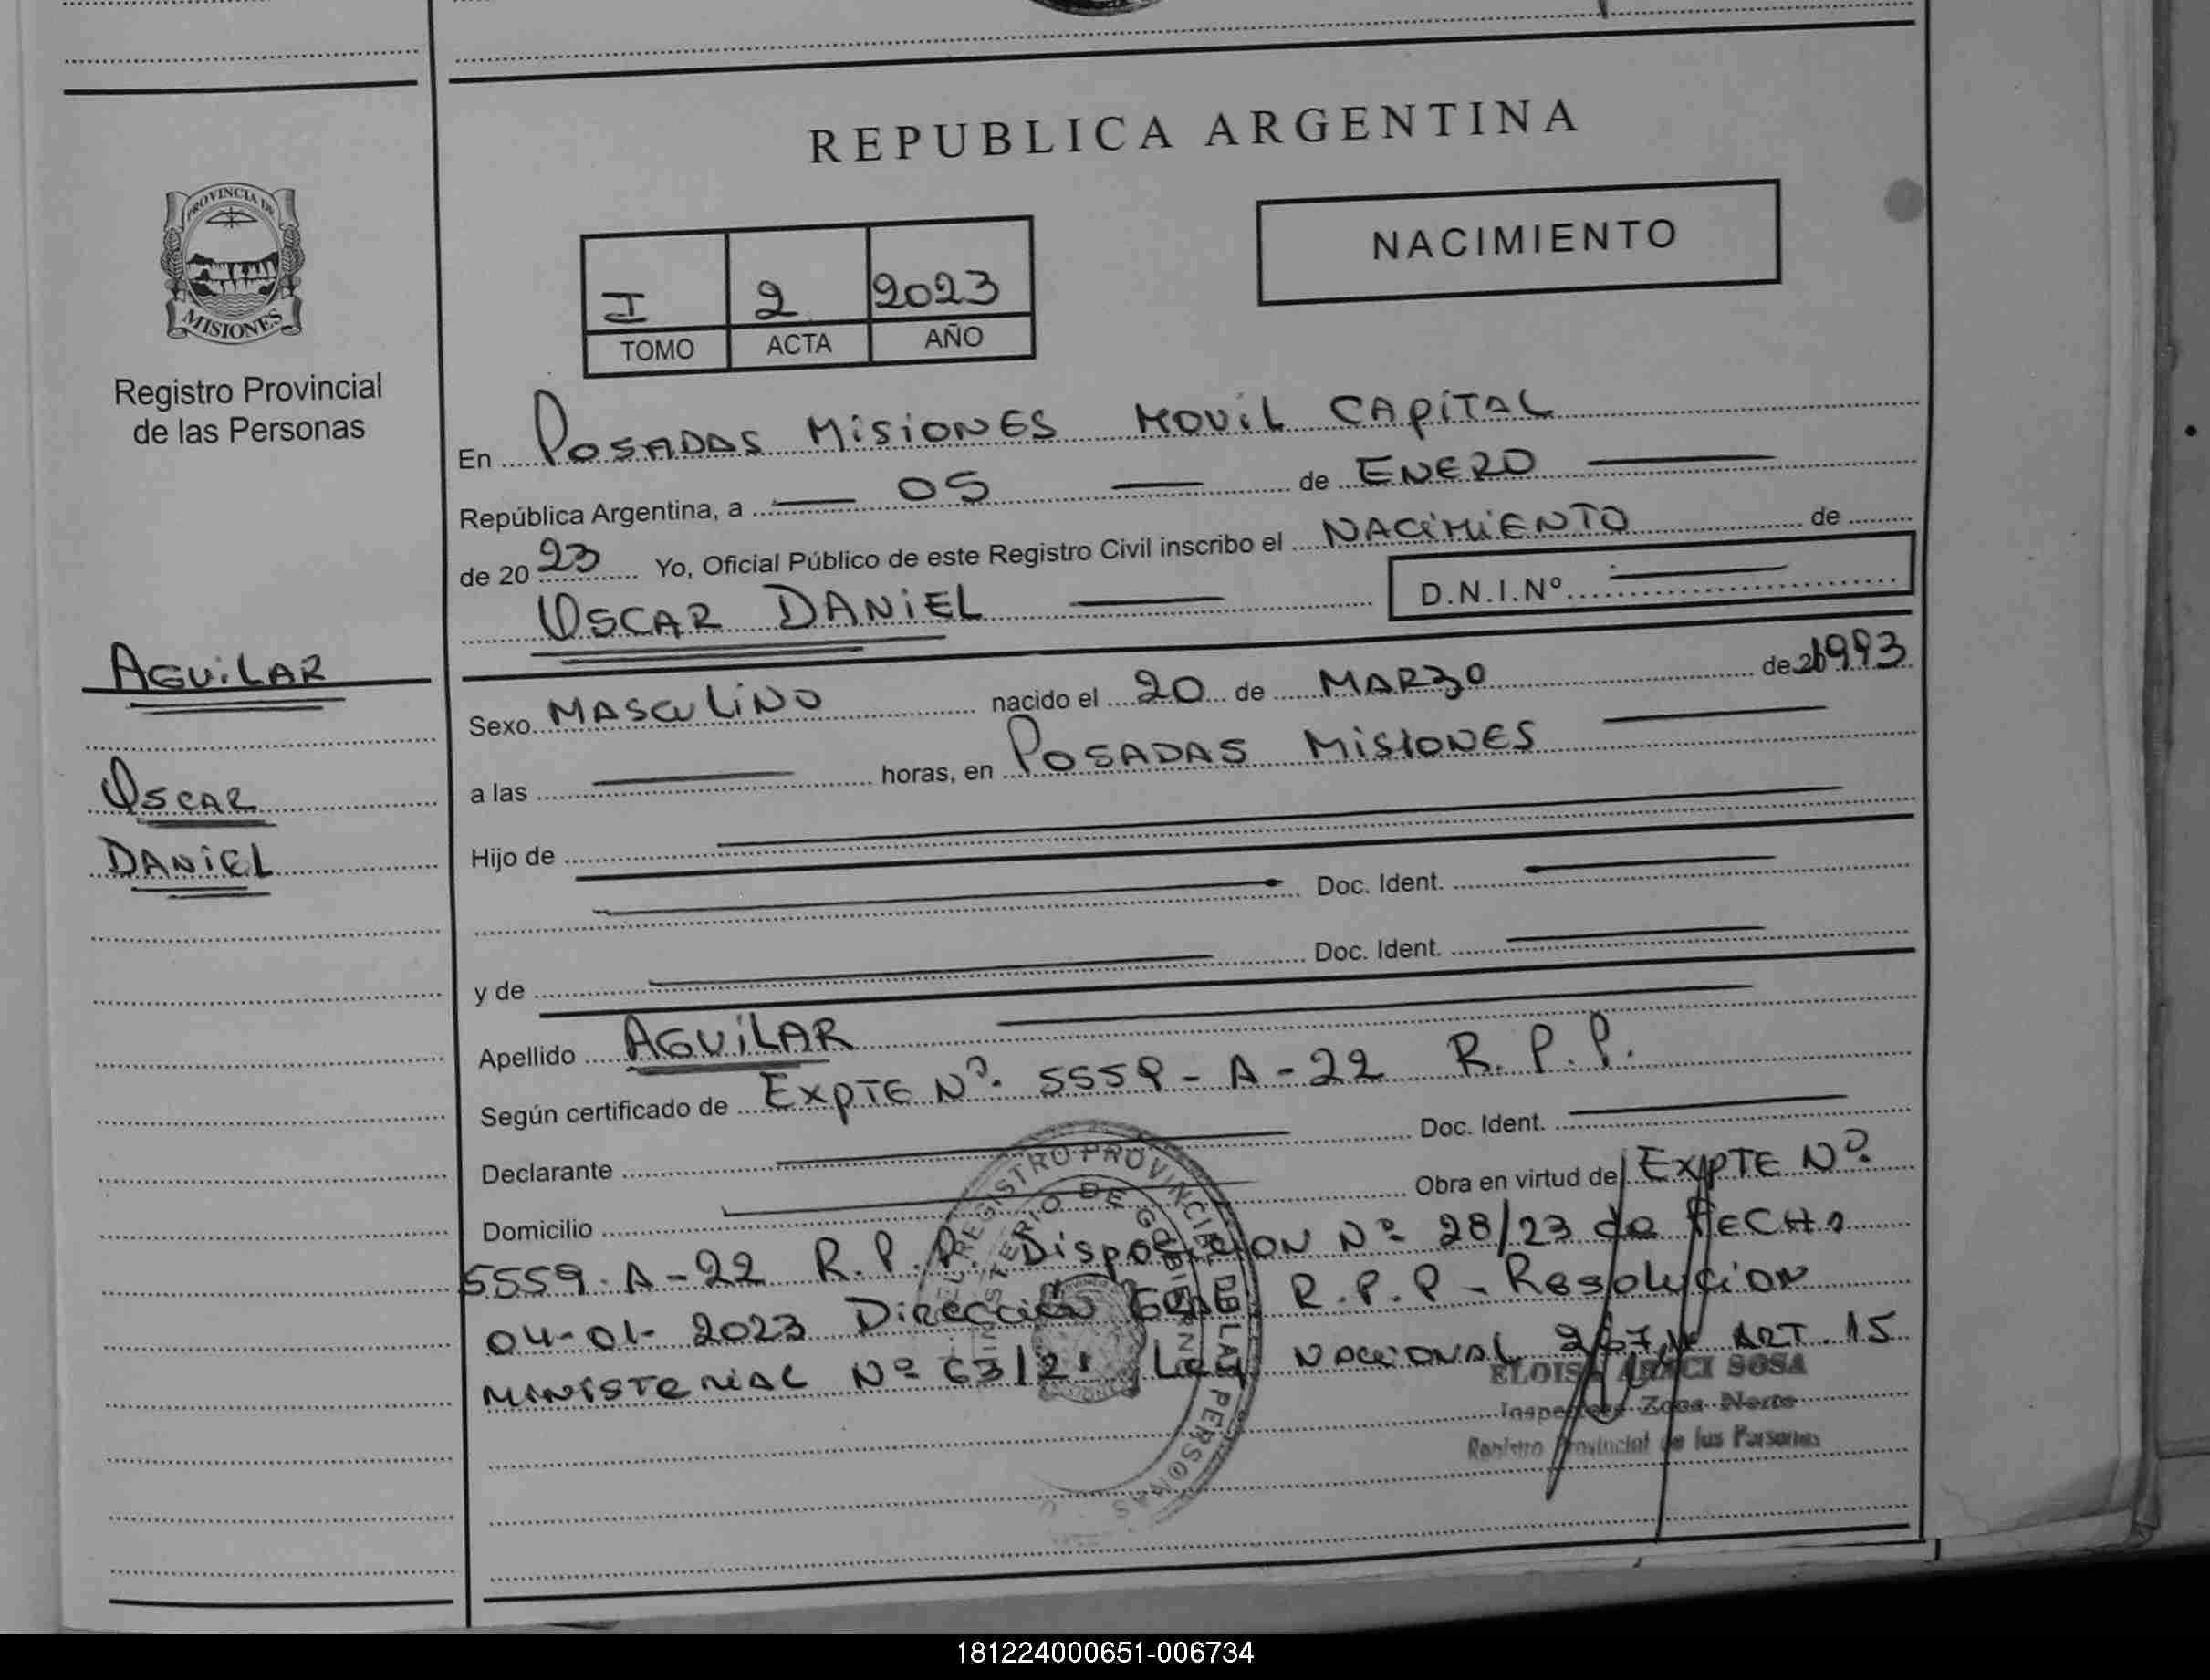 REPUBLICA ARGENTINA
PROVINCIA DE
MISIONES
Registro Provincial
de las Personas
NACIMIENTO
I 2 2023
TOMO ACTA AÑO
En POSADAS MISIONES MOVIL CAPITAL
República Argentina, a 05 de ENERO
de 2023 Yo, Oficial Público de este Registro Civil inscribo el NACIMIENTO de
OSCAR DANIEL D.N.I.Nº
AGUILAR
OSCAR
DANIEL
Sexo MASCULINO nacido el 20 de MARZO de 1993
a las horas, en POSADAS MISIONES
Hijo de
Doc. Ident.
y de Doc. Ident.
Apellido AGUILAR
Según certificado de EXPTE Nº. 5559-A-22 R.P.P.
Declarante Doc. Ident.
Domicilio Obra en virtud de EXPTE Nº.
5559-A-22 R.P.P. Disposicion Nº 28/23 de FECHA
04-01-2023 Dirección R.P.P - Resolucion
MINISTERIAL Nº 63/21 Ley NACIONAL ART. 15
SOSA
Zona Norte
Registro Provincial de las Personas
REGISTRO PROVINCIAL DE LAS PERSONAS
MINISTERIO DE GOBIERNO
181224000651-006734